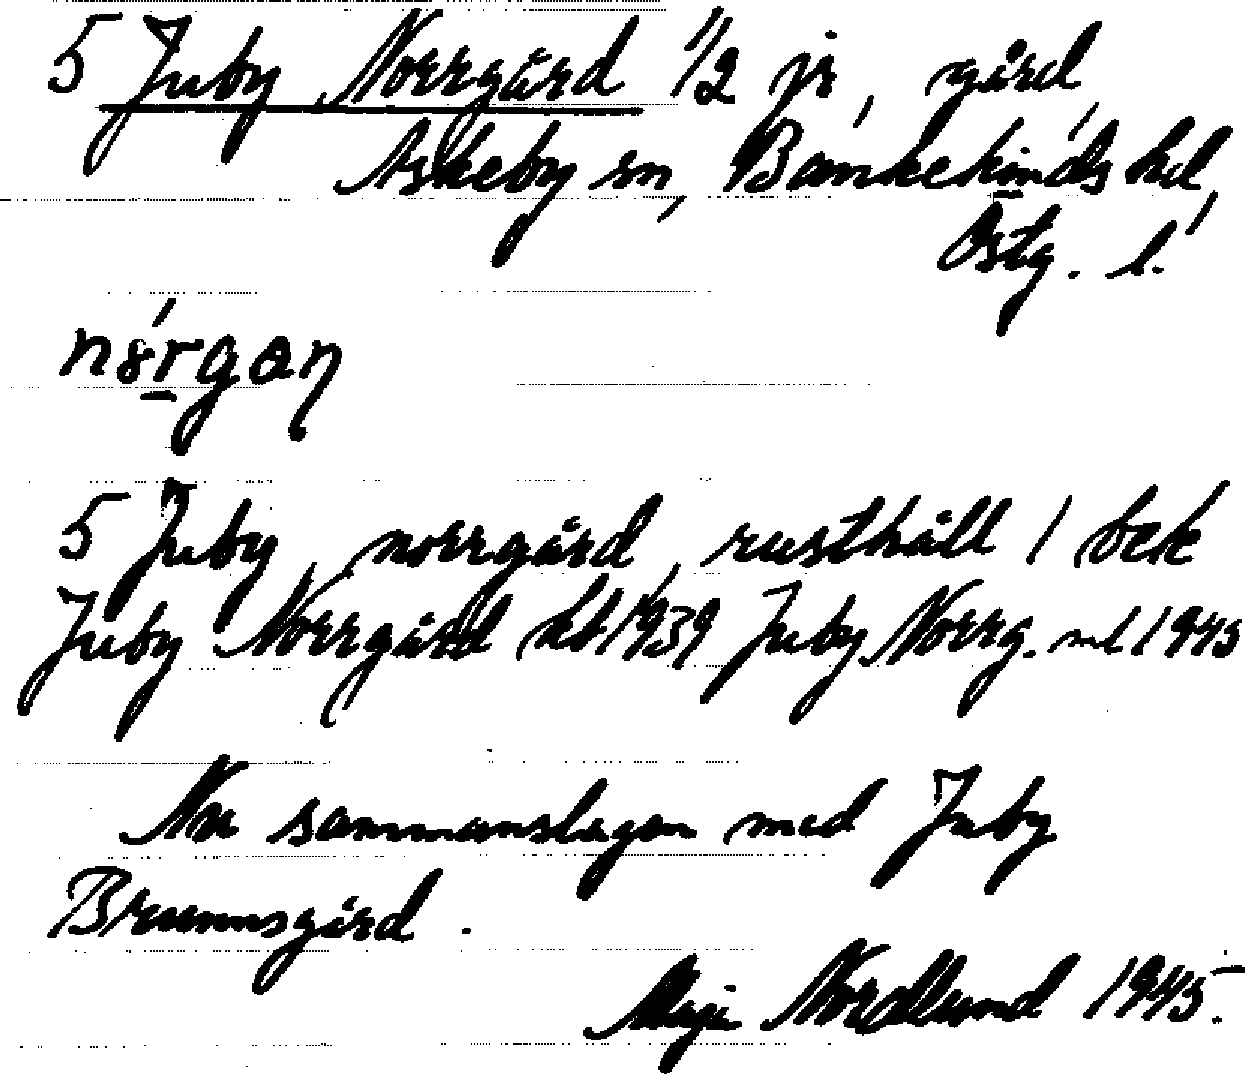 5 Juby Norrgård 1/2 jr, gård
Askeby sn, Bankekinds hd,
Östg. l.
nórgan
5 Juby norrgård rusthåll 1 bek
Juby Norrgård hbl 1939 Juby Norrg. ml 1945
Nu sammanslagen med Juby
Brunnsgård.
Maja Nordlund 1945.